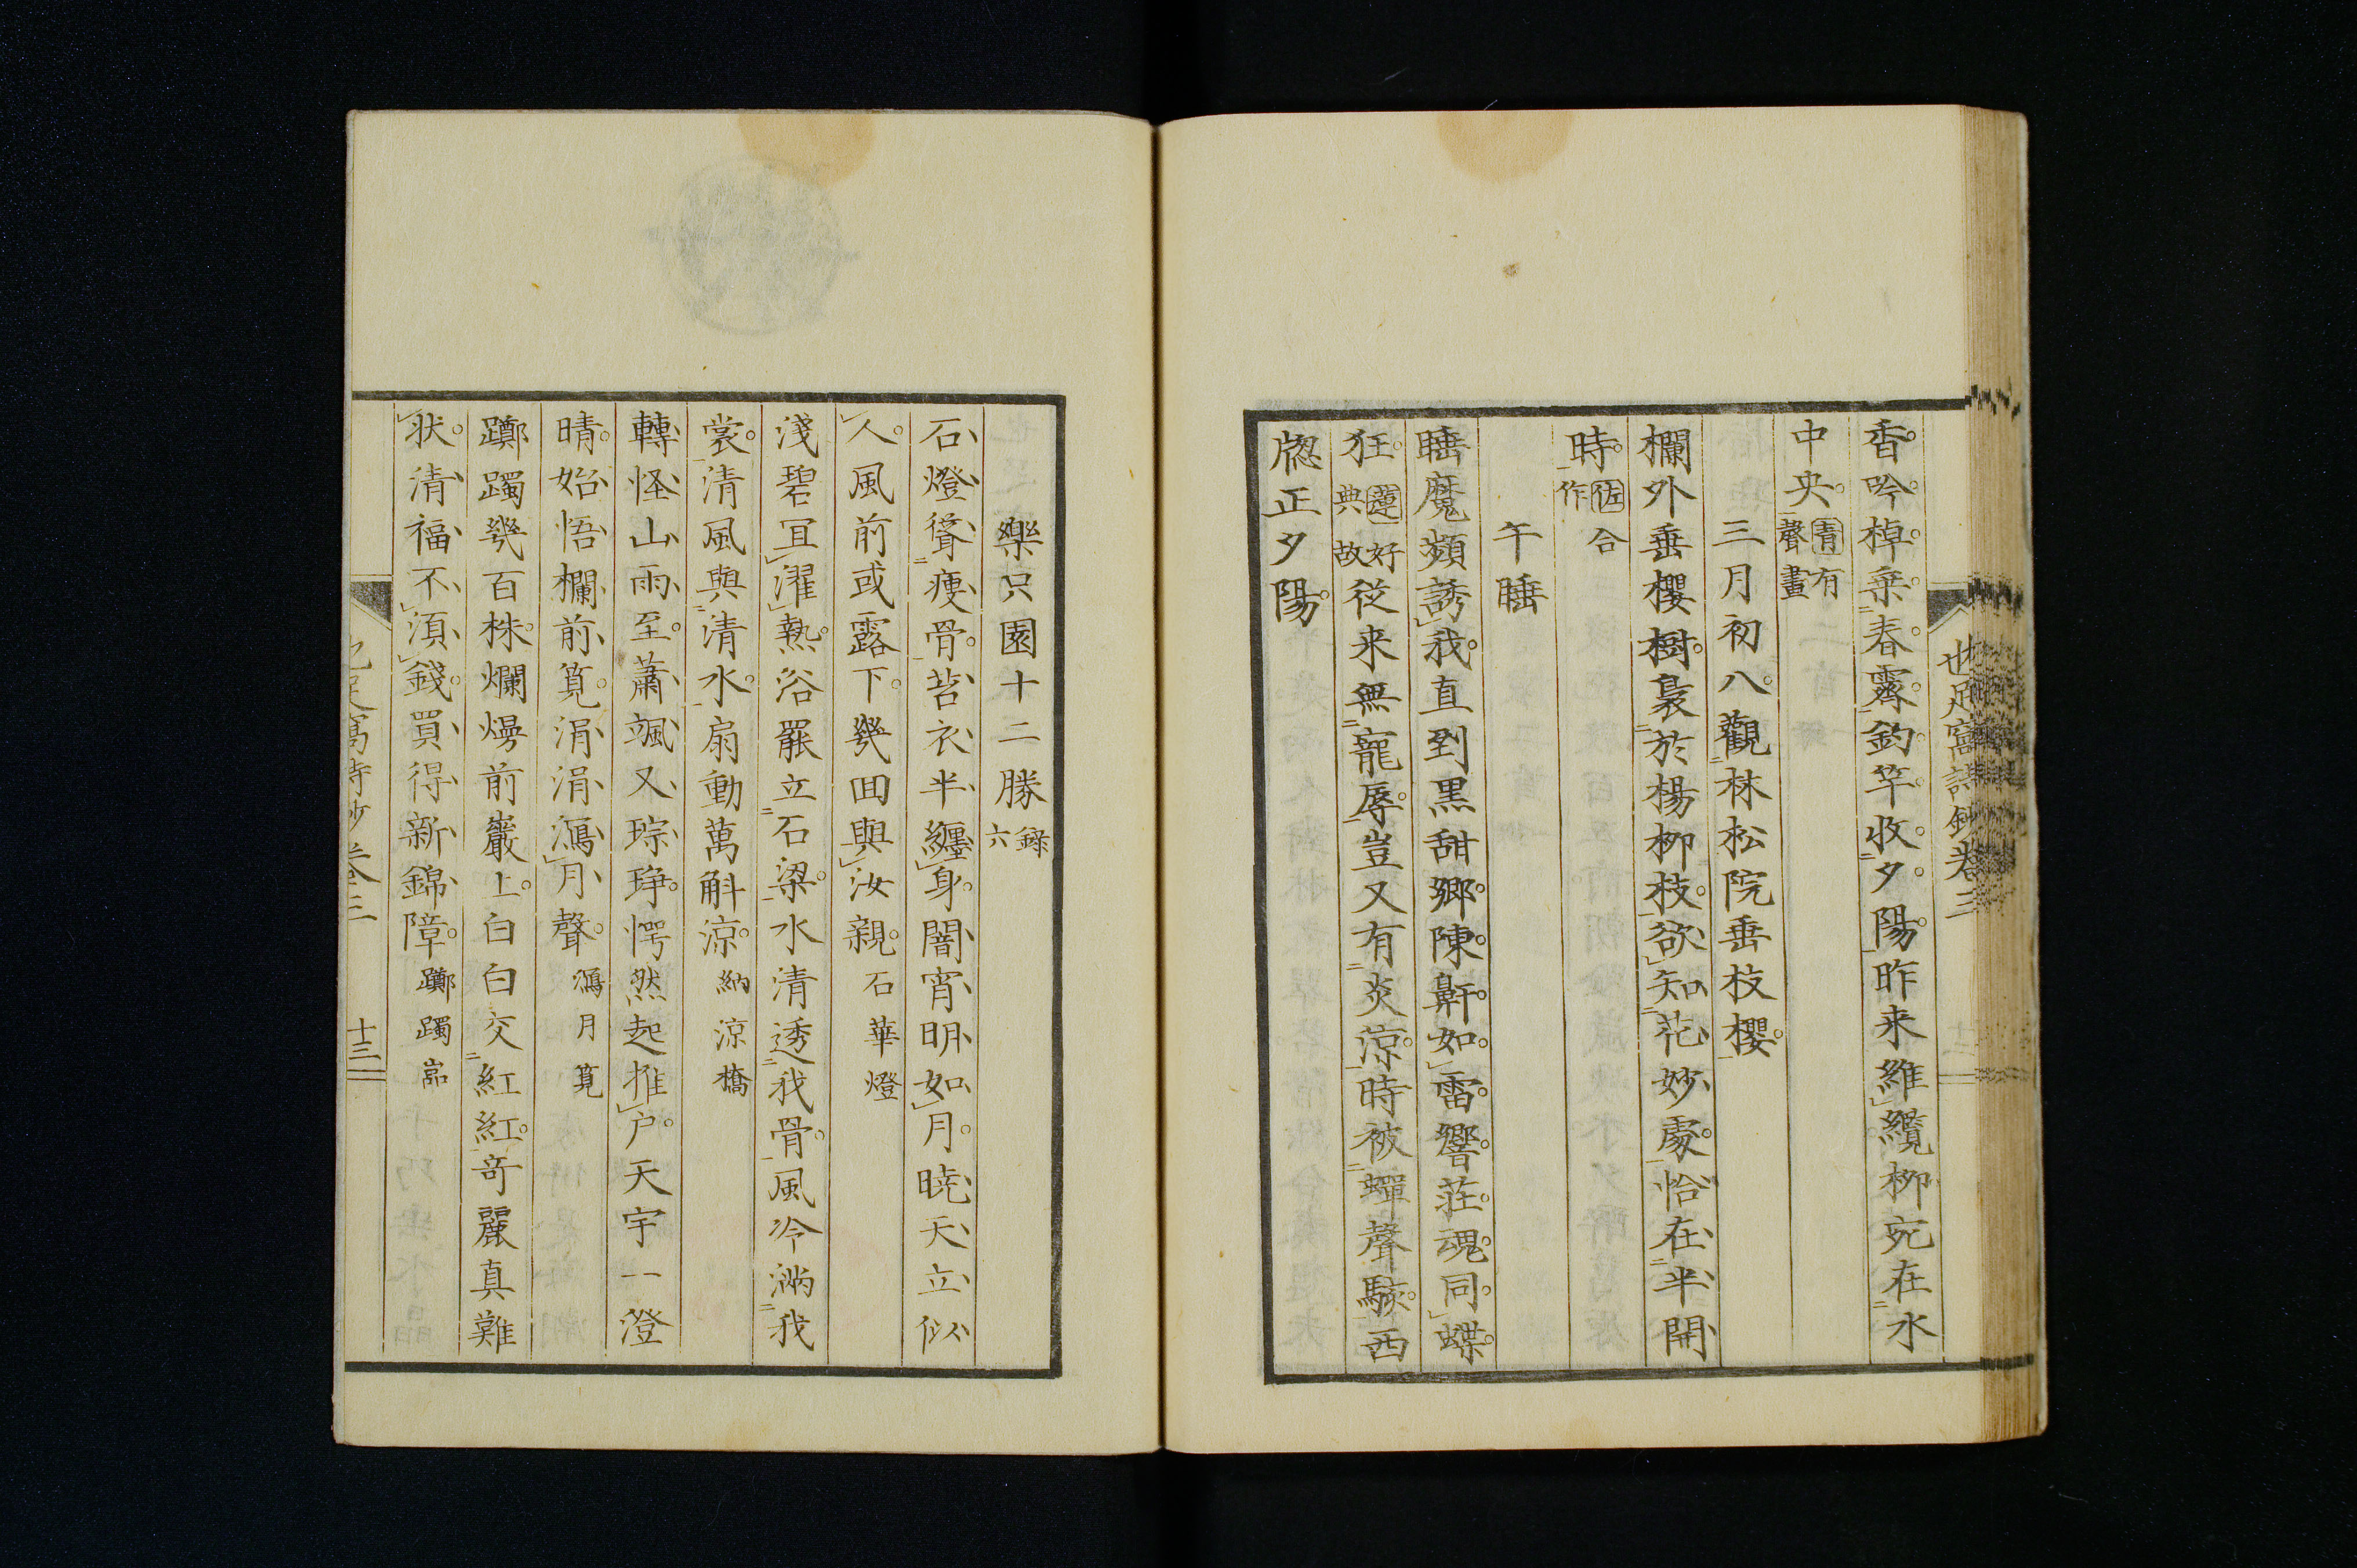 也足窩詩鈔卷三
香吟棹乘春霽釣竿收夕陽昨来維纜柳宛在水
中央 青有聲畫
三月初八觀林松院垂枝櫻
欄外垂櫻樹裊於楊柳枝欲知花妙處恰在半開
時 佐合作
午睡
睡魔頻誘我直到黒甜郷陳鼾如雷響莊魂同蝶
狂 蘧好典故 従来無寵辱豈又有炎涼時被蟬聲駭西
窓正夕陽
樂只園十二勝 錄六
石燈聳痩骨苔衣半纏身闇宵明如月曉天立似
人風前或露下幾回與汝親 石華燈
淺碧冝濯熱浴罷立石梁水清透我骨風冷滿我
裳清風與清水扇動萬斛涼 納涼橋
轉怪山雨至蕭颯又琮琤愕然起推戸天宇一澄
晴始悟欄前筧涓涓瀉月聲 瀉月筧
躑躅幾百株爛熳前巖上白白交紅紅奇麗真難
狀清福不須錢買得新錦障 躑躅嵓
也足窩詩鈔卷三 十三